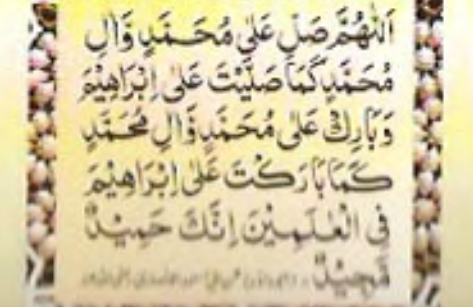 اَللّٰهُمَّ صَلِّ عَلٰی مُحَمَّدٍ وَّاٰلِ
مُحَمَّدٍ كَمَا صَلَّيْتَ عَلٰی اِبْرَاهِيْمَ
وَبَارِكْ عَلٰی مُحَمَّدٍ وَّاٰلِ مُحَمَّدٍ
كَمَا بَارَكْتَ عَلٰی اِبْرَاهِيْمَ
فِی الْعٰلَمِيْنَ اِنَّكَ حَمِيْدٌ
مَّجِيْدٌ